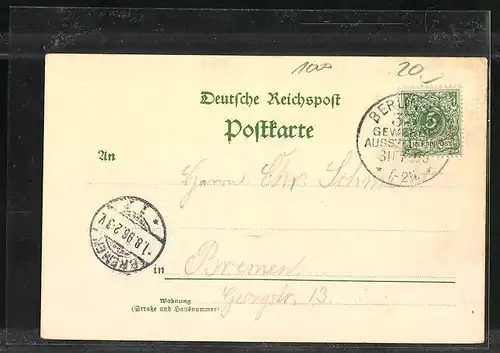 100
20.
Deutsche Reichspost
Postkarte
BERLIN
GEWERBE
AUSSTELLUNG
31/7 96
5
REICHSPOST
An
Herrn Chr. Schm
BREMEN
1.8.96.2-3 V.
in Bremen
Wohnung
(Straße und Hausnummer)
Georgstr. 13.